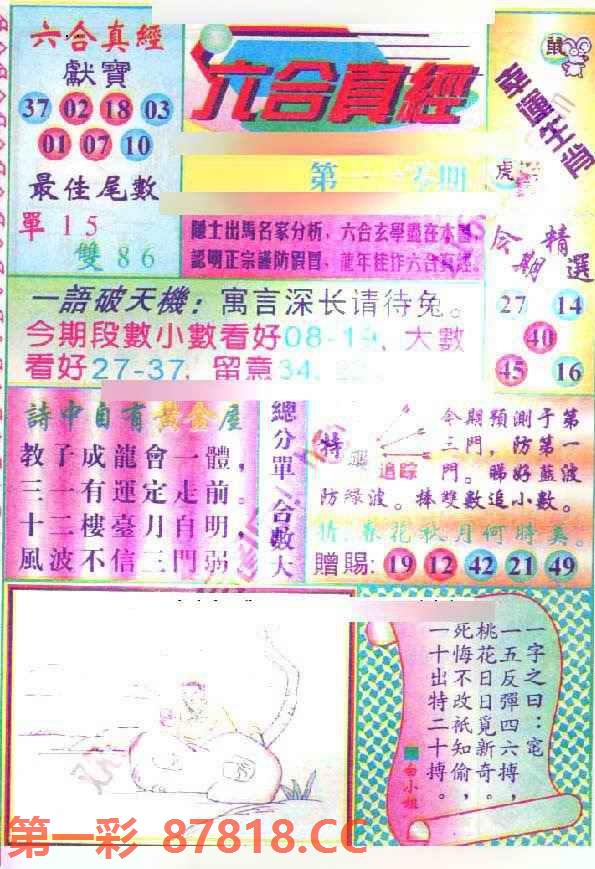 六合真經
獻寶
37 02 18 03
01 07 10
最佳尾數
單 1 5
雙 8 6
六合真經
鼠
幸運生肖
虎
隱士出馬名家分析，六合玄學盡在本圖，
認明正宗謹防假冒，龍年佳作六合真經。
今期精選
27 14
40
45 16
一語破天機：寓言深长请待兔。
今期段數小數看好08-19、大數
看好27-37，留意34,
詩中自有黃金屋
教子成龍會一體，
三一有運定走前。
十二樓臺月自明，
風波不信三門弱
總分單 合數大
特 追踪
今期預測于第
三門，防第一
門。睇好藍波
防綠波。捧雙數追小數。
猜：春花秋月何時美。
贈賜：19 12 42 21 49
一字之曰：寵
一五反彈四六搏，
桃花日日覓新奇。
死悔不改祇知偷，
一十出特二十搏。
白小姐
第一彩 87818.CC